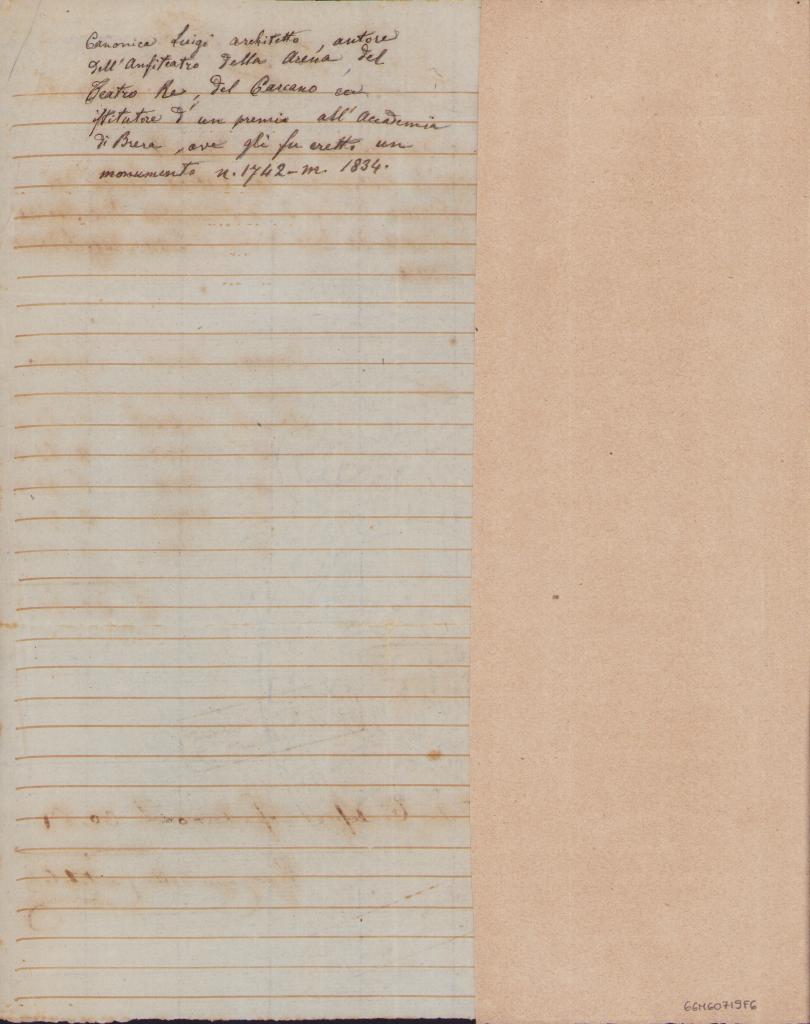 Canonica Luigi architetto, autore
dell'Anfiteatro della Arena, del
Teatro Re, del Carcano
istitutore d'un premio all'Accademia
di Brera, ove gli fu eretto un
monumento n. 1742 - m. 1834.
66M60719F6